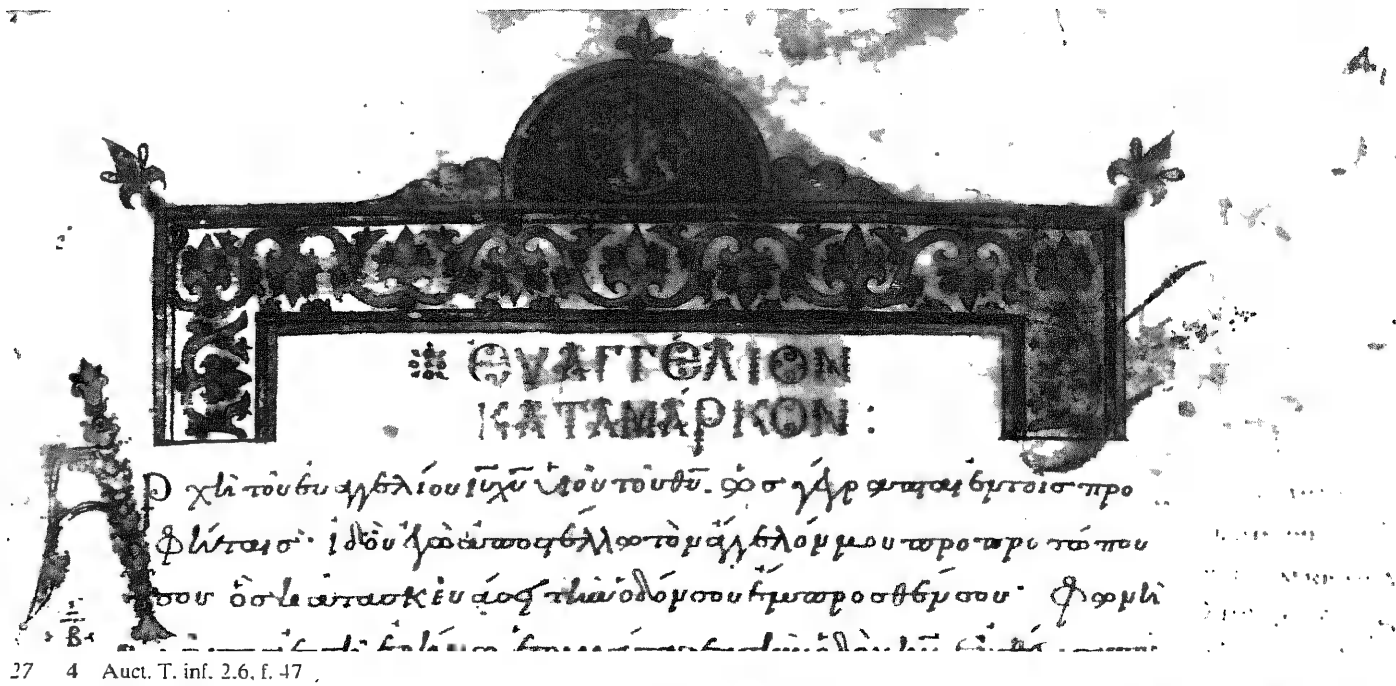 ΕΥΑΓΓΕΛΙΟΝ
ΚΑΤΑ ΜΑΡΚΟΝ :
Ἀρχὴ τοῦ εὐαγγελίου ἰῦ χῦ υἱοῦ τοῦ θῦ. ὡσ γέγραπται ἐν τοῖσ προ
φήταισ· ἰδοὺ ἐγὼ ἀποστέλλω τὸν ἄγγελόν μου πρὸ προσώπου
σου ὃσ κατασκευάσει τὴν ὁδόν σου ἔμπροσθέν σου· Φωνὴ
Β
27 4 Auct. T. inf. 2.6, f. 47